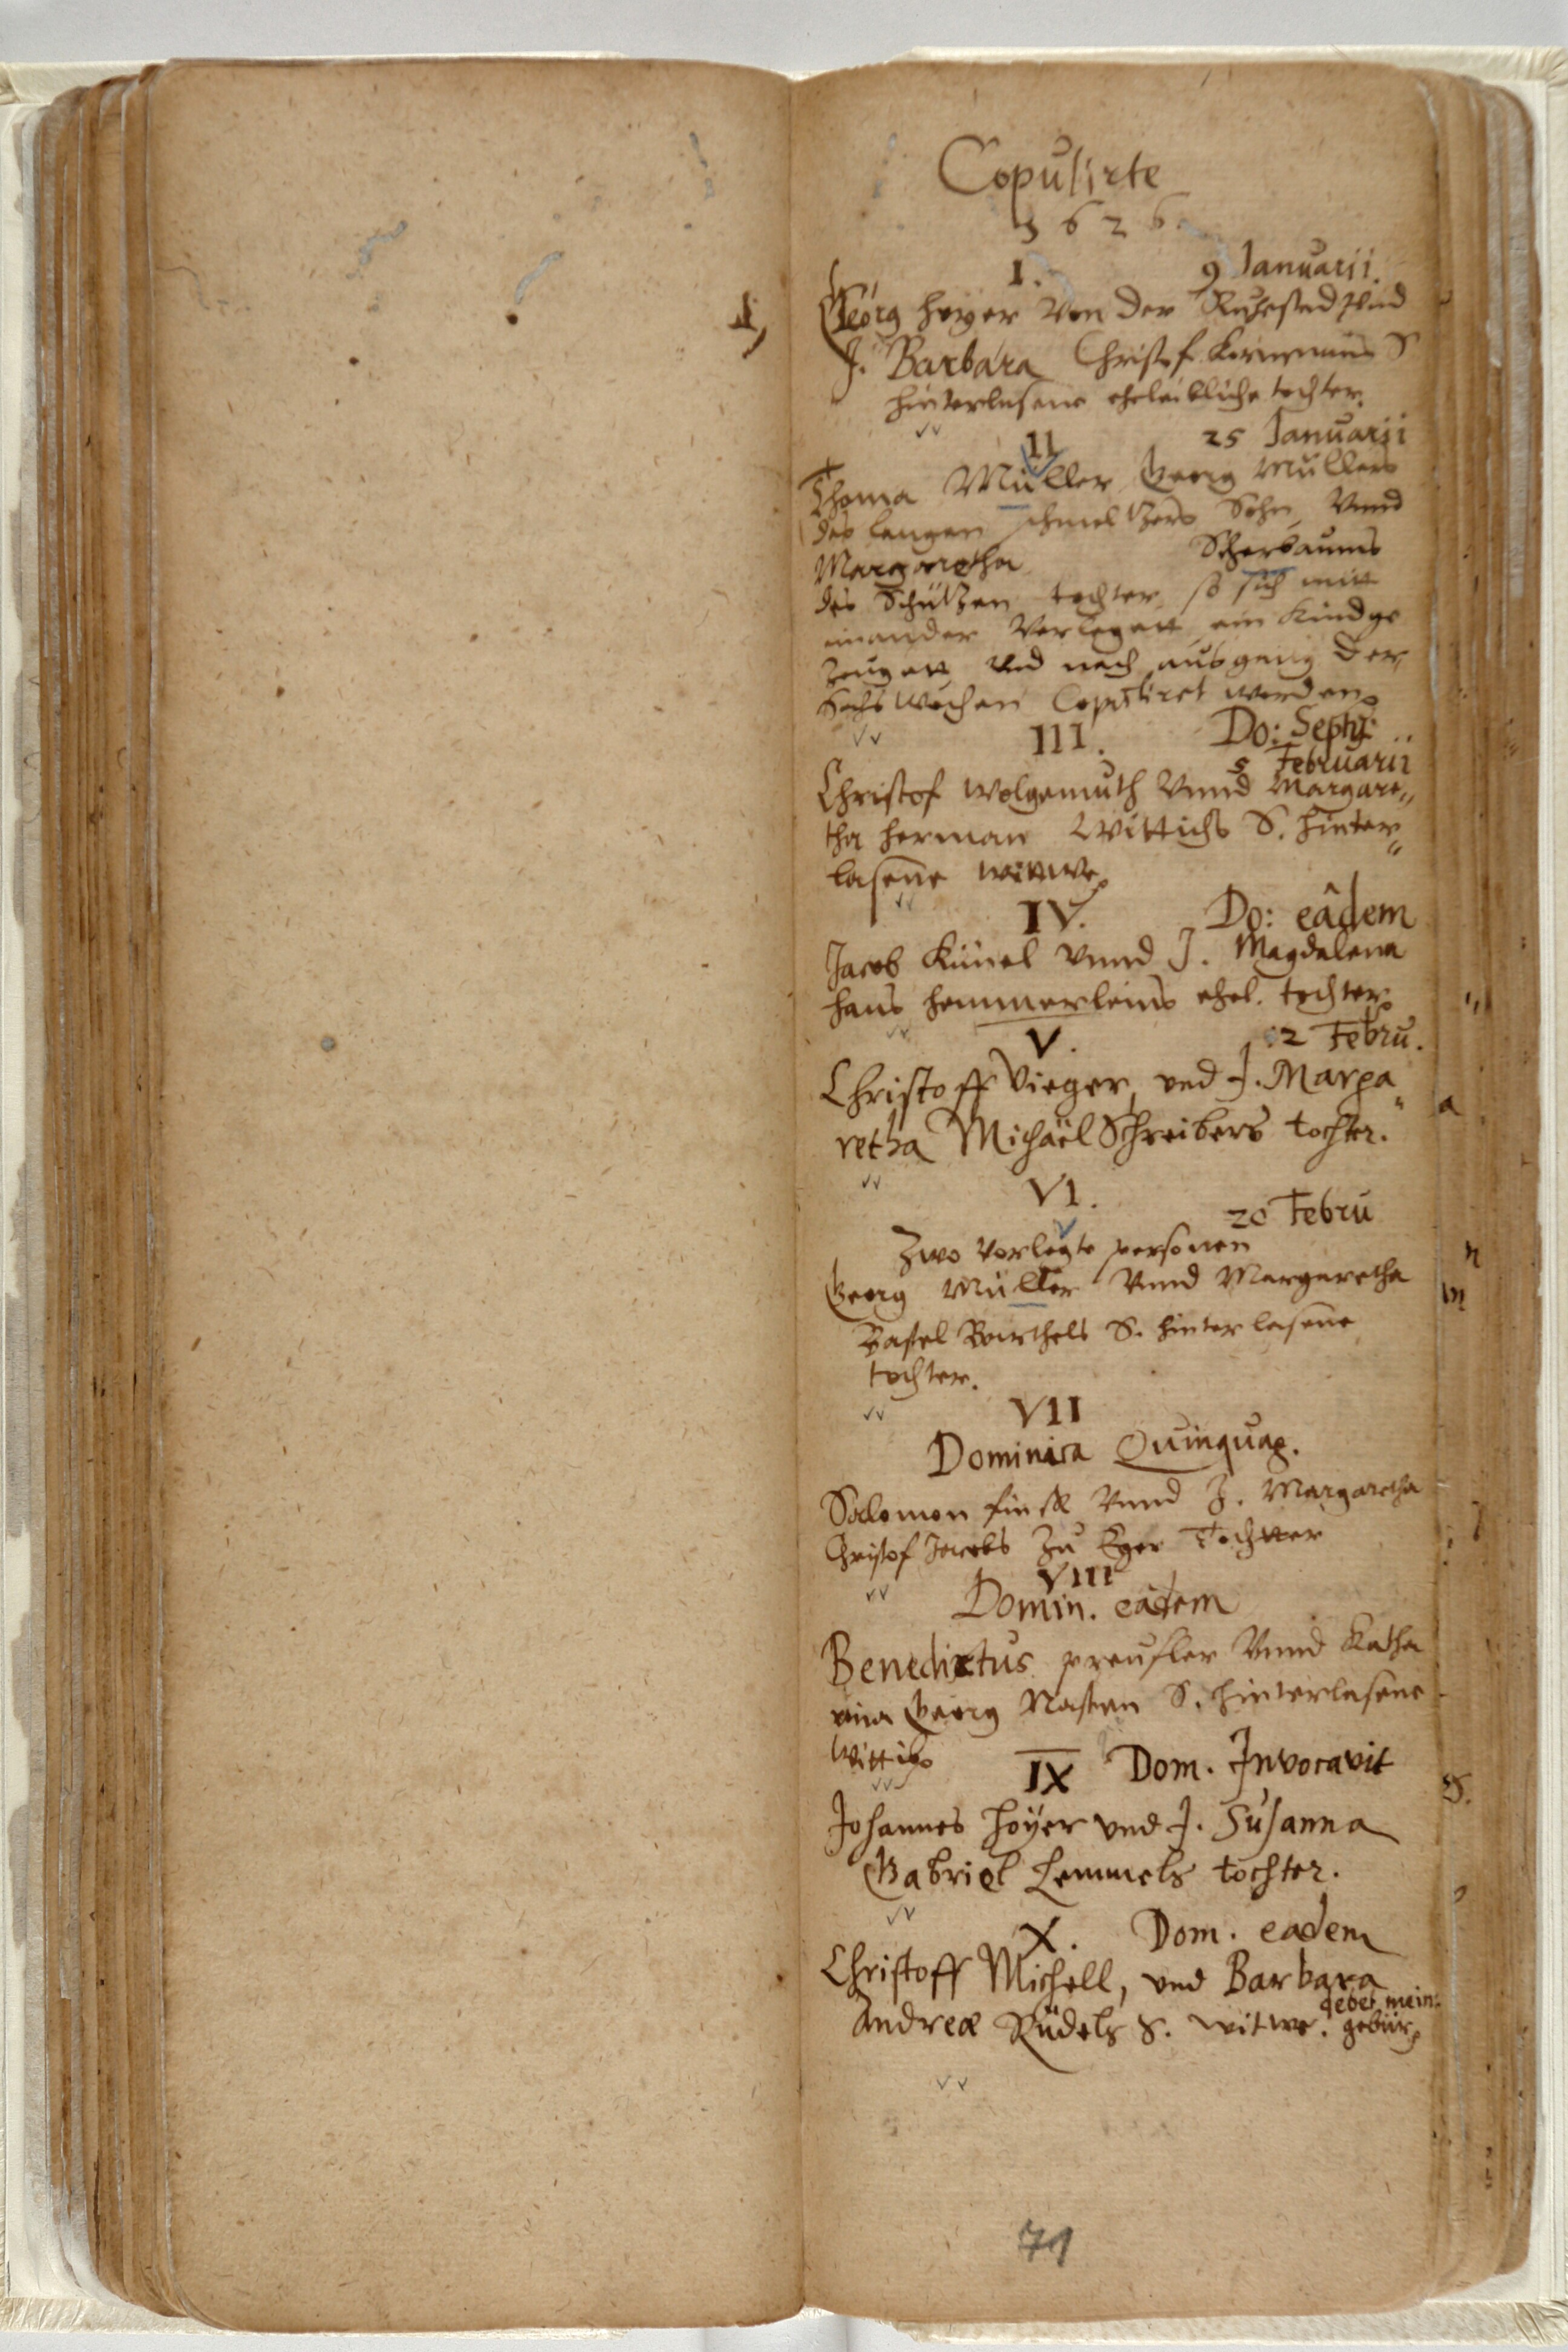 Copulirte
1626.
I. 9 Januarii.
Georg Hoyer von der Vnd
J. Barbara Christof S
hinterlasene eheleibliche tochter.
II 25 Januarii
Thoma Müller Georg Müllers
des langen schmeltzers Sohn, Vnnd
Margaretha Scherbaums
des Schützen tochter, so sich mitt
einander Verlegett ein Kind ge
zeugett vnd nach ausgang der
Sechs wochen Copuliret worden.
III. Do: Septg:
5 Februarii
Christof Wolgemuth Vnnd Margare„
tha Herman Wittichs S. hinter„
lasene wittwe.
IV. Do: eâdem
Jacob Künel Vnnd J. Magdalena
Hans Hemmerleins ehel. tochter.
V. 12 Febru.
Christoff Vieger, vnd J. Marga„
retha Michaël Schreibers tochter.
VI.
20 Febru
Zwo verlegte personen
Georg Müller Vnnd Margaretha
Bastel Barthels S. hinterlasene
tochter.
VII
Dominica Quinquag.
Salomon Vnnd J. Margaretha
Christof Jacobs Zu Eger Tochtter
VIII
Domin. eâdem
Benedictus preusler Vnnd Katha
rina Georg S. hinterlasene
Wittib.
IX Dom. Invocavit
Johannes Hoÿer vnd J. Susanna
Gabriel Lemmels tochter.
X. Dom. eadem
Christoff Michell, vnd Barbara
Andreæ Rüdels S. witwe. debet mein
gebür.
71